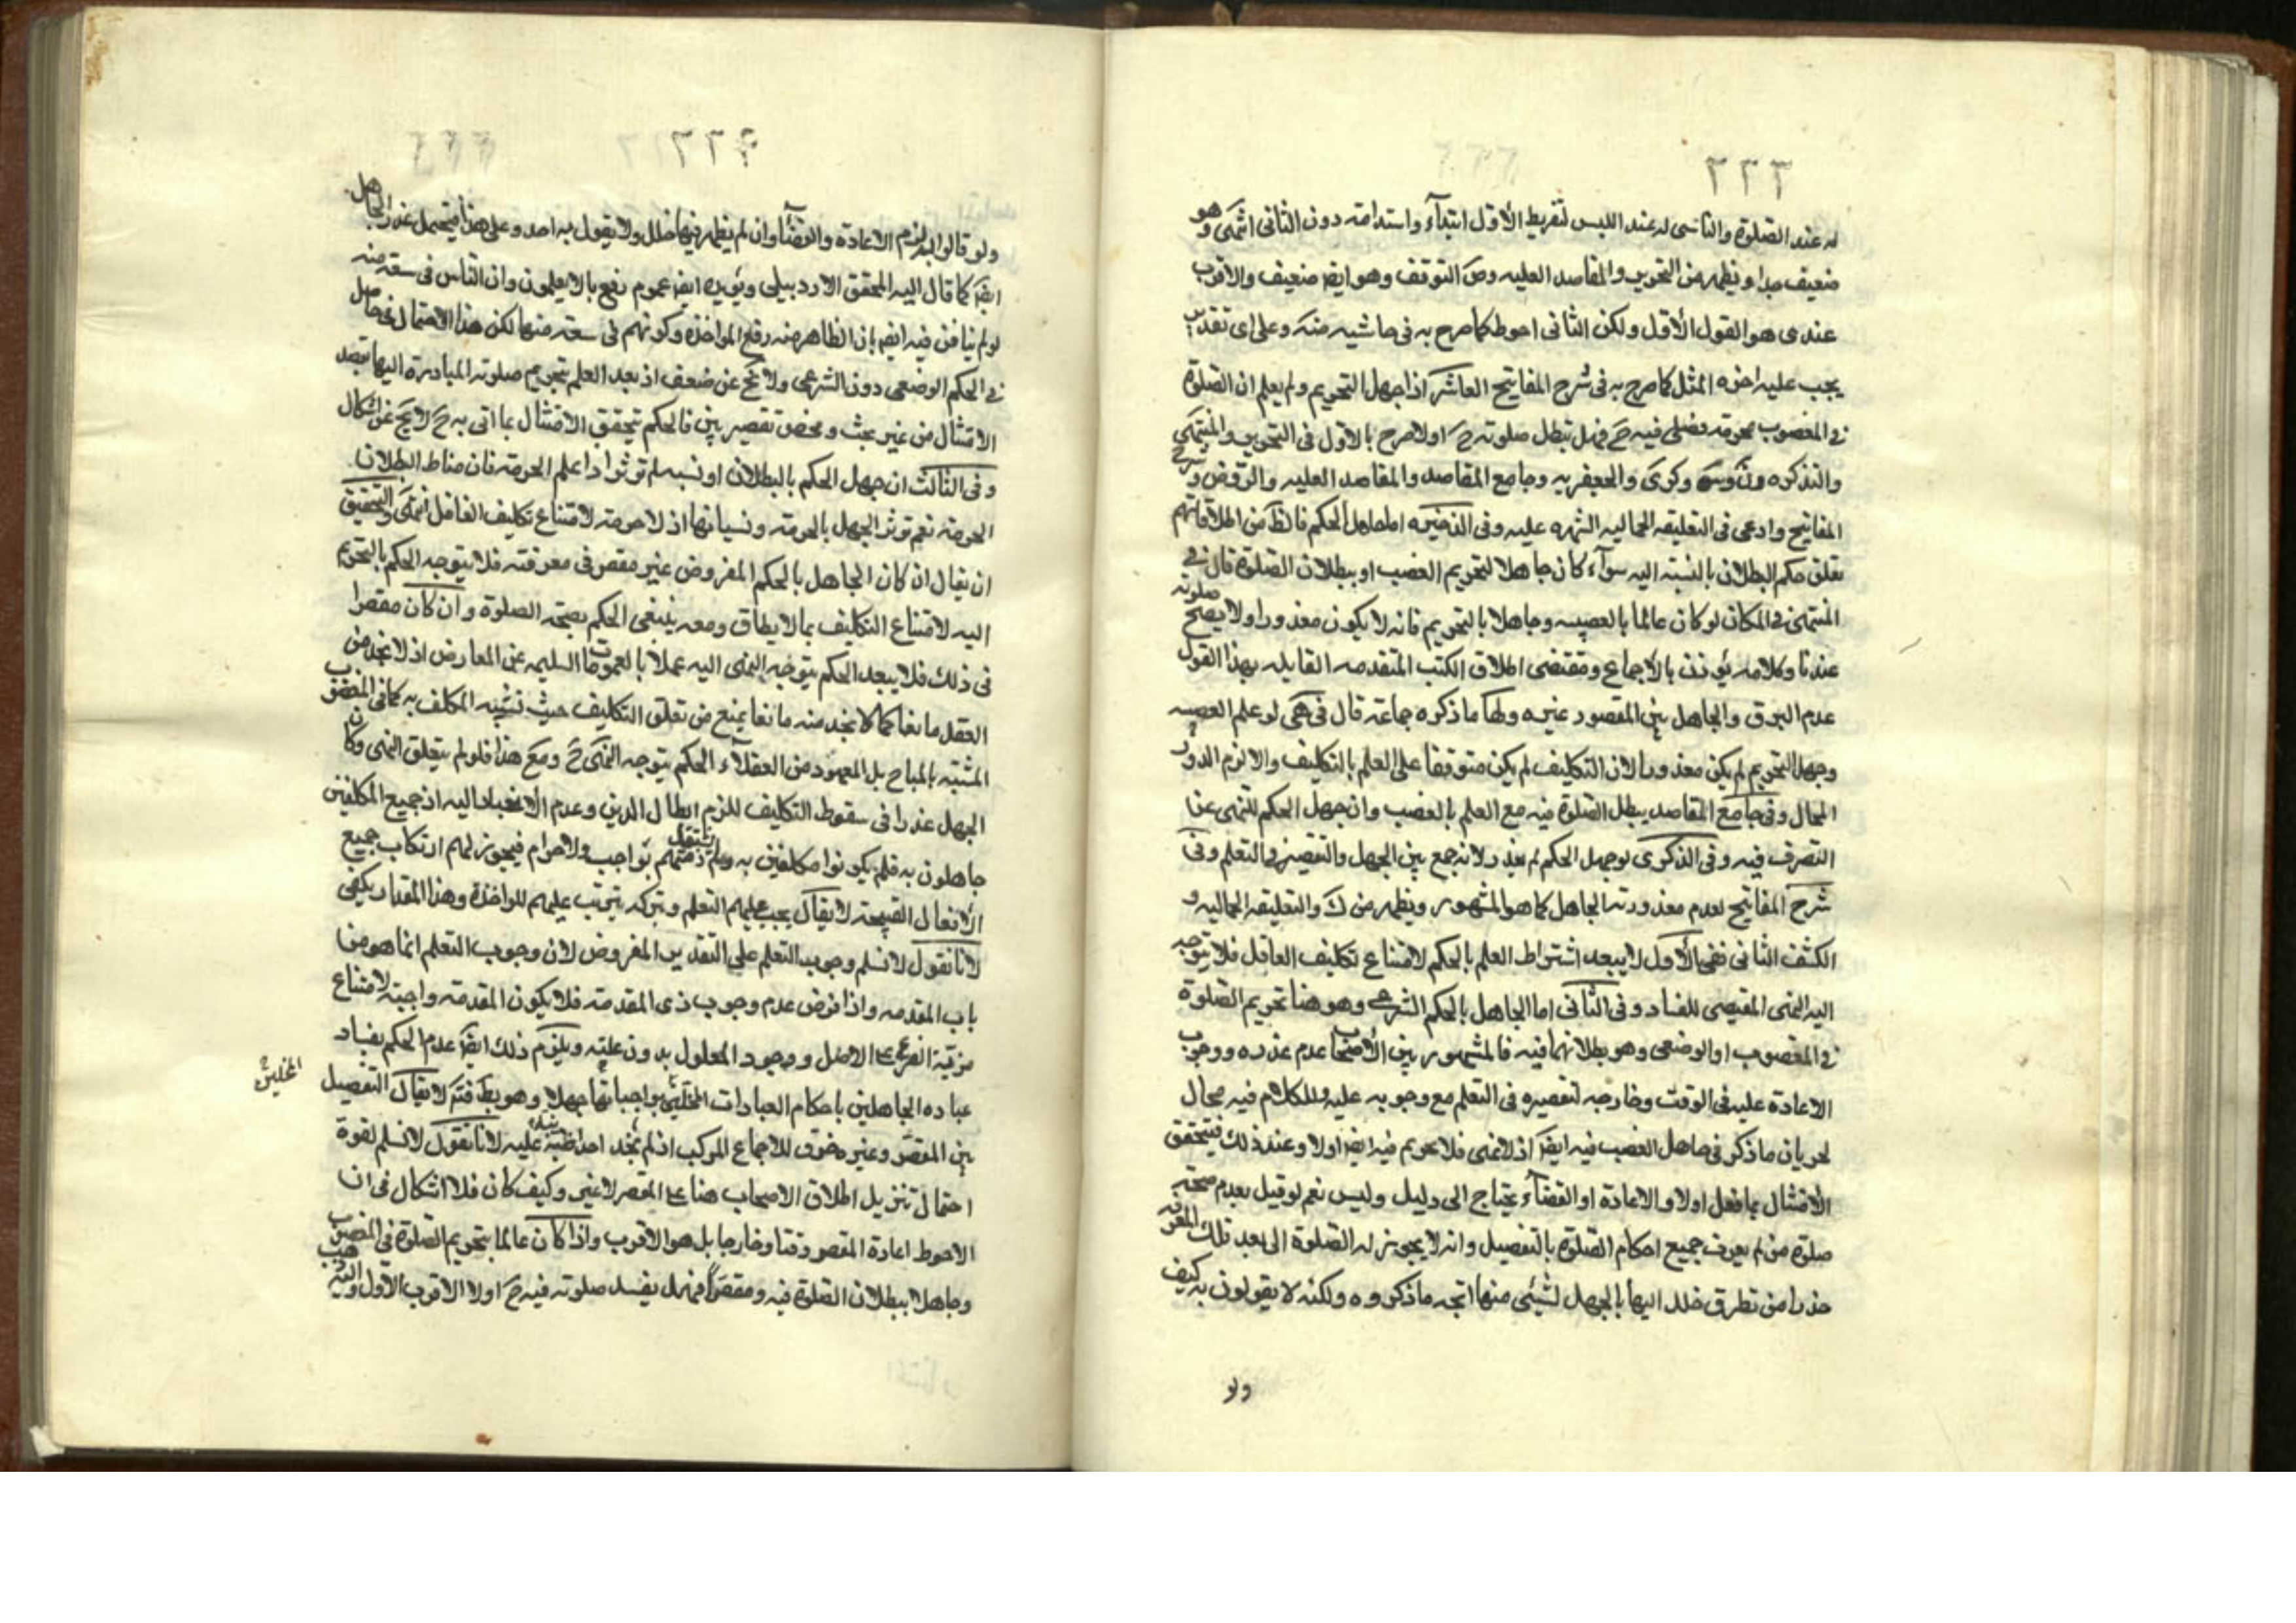 ٢٢٢
له عند الصلوة والناسى له عند اللبس لتفريط الأول ابتدآء واستدامة دون الثانى انتهى وهو
ضعيف جدا ويظهر من التحرير والمقاصد العليه وض التوقف وهو ايضا ضعيف والاقرب
عندى هو القول الأول ولكن الثانى احوط كما صرح به فى حاشيه منه وعلى اى تقدير
يجب عليه اجزه المثل كما صرح به فى شرح المفاتيح العاشر اذا جهل التحريم ولم يعلم ان الصلوة
فى المغصوب محرمة فصلى فيه ح فهل تبطل صلوته ح اولا صرح بالأول فى التحرير والمنتهى
والتذكره ون وس وكرى والجعفريه وجامع المقاصد والمقاصد العليه والروض وشرح
المفاتيح وادعى فى التعليقه الجماليه الشهره عليه وفى الذخيره اما جاهل الحكم فالظ من اطلاقاتهم
تعلق حكم البطلان بالنسبة اليه سوآء كان جاهلا لتحريم الغصب او ببطلان الصلوة قال فى
المنتهى فى المكان لو كان عالما بالغصبيه وجاهلا بالتحريم فانه لا يكون معذورا ولا يصح صلوته
عندنا وكلامه يؤذن بالأجماع ومقتضى اطلاق الكتب المتقدمه القايله بهذا القول
عدم الفرق والجاهل بين المقصور غيره ولها ما ذكره جماعة قال فى هى لو علم الغصبيه
وجهل التحريم لم يكن معذورا لان التكليف لم يكن متوقفا على العلم بالتكليف والا لزم الدور
المحال وفى جامع المقاصد يبطل الصلوة فيه مع العلم بالغصب وان جهل الحكم للنهى عن
التصرف فيه وفى الذكرى لو جهل الحكم لم يعذر لانه جمع بين الجهل والتقصير فى التعلم وفى
شرح المفاتيح لعدم معذورية الجاهل كما هو المشهور ويظهر من ك والتعليقه الجماليه و
الكشف الثانى ففى الأول لا يبعد اشتراط العلم بالحكم لامتناع تكليف الغافل فلا يتوجه
اليه النهى المقتضى للفساد وفى الثانى اما الجاهل بالحكم الشرعى وهو هنا تحريم الصلوة
فى المغصوب او الوضعى وهو بطلانها فيه فالمشهور بين الأصحاب عدم عذره ووجوب
الاعادة عليه فى الوقت وخارجه لتقصيره فى التعلم مع وجوبه عليه وللكلام فيه مجال
لجريان ما ذكر فى جاهل الغصب فيه ايضا اذ لا نهى فلا تحريم فيه ايضا اولا وعند ذلك فيتحقق
الأمتثال بما فعل اولا والاعادة او القضآء يحتاج الى دليل وليس نعم لو قيل بعدم صحة
صلوة من لم يعرف جميع احكام الصلوة بالتفصيل وانه لا يجوز له الصلوة الى بعد تلك المعرفة
حذرا من تطرق خلل اليها بالجهل لشيئى منها اتجه ما ذكروه ولكنه لا يقولون به كيف
ولو
٢٢٢
ولو قالوا به لزم الاعادة والقضآء وان لم يظهر فيها خلل ولا يقول به احد وعلى هذا فيحتمل عذر الجاهل
ايضا كما قال اليه المحقق الاردبيلى ويؤيده ايضا عموم رفع ما لا يعلمون وان الناس فى سعة منه
لو لم يناقش فيه ايضا بان الظاهر منه رفع المواخذة وكونهم فى سعة منها لكن هذا الاحتمال فى جاهل
فى الحكم الوضعى دون الشرعى ولا يخ عن ضعف اذ بعد العلم بتحريم صلوته المبادرة اليها بقصد
الامتثال من غير بحث ومحض تقصير بين فالحكم بتحقق الامتثال بما اتى به ح لا يخ عن اشكال
وفى الثالث ان جهل الحكم بالبطلان او نسيه لم توثر اذا علم الحرمة فان مناط البطلان
الحرمة نعم توثر الجهل بالحرمة ونسيانها اذ لا حرمة لامتناع تكليف الغافل انتهى والتحقيق
ان يقال ان كان الجاهل بالحكم المفروض غير مقصر فى معرفته فلا يتوجه الحكم بالتحريم
اليه لامتناع التكليف بما لا يطاق ومعه ينبغى الحكم بصحة الصلوة وان كان مقصرا
فى ذلك فلا يبعد الحكم بتوجه النهى اليه عملا بالعمومات السليمه عن المعارض اذ لا نجد من
العقل مانعا كما لا نجد منه مانعا يمنع من تعلق التكليف حيث نشتبه المكلف به كما فى المغصوب
المشتبه بالمباح بل المعهود من العقلآء الحكم بتوجه النهى ح ومع هذا فلو لم يتعلق النهى وكان
الجهل عذرا فى سقوط التكليف للزم ابطال الدين وعدم الأنقياد اليه اذ جميع المكلفين
جاهلون به فلم يكونوا مكلفين به ولم تشتغل ذمتهم بواجب ولا حرام فيجوز لهم ارتكاب جميع
الأفعال القبيحة لا يقال يجب عليهم التعلم وبتركه يترتب عليهم المواخذة وهذا المقدار يكفى
لأنا نقول لا نسلم وجوب التعلم على التقدير المفروض لان وجوب التعلم انما هو من
باب المقدمه واذا فرض عدم وجوب ذى المقدمة فلا يكون المقدمة واجبة لامتناع
مزية الفرع على الاصل ووجود المعلول بدون علته ويلزم ذلك ايضا عدم الحكم بفساد
عباده الجاهلين باحكام العبادات المخلين بواجباتها جهلا وهو بط فتم لا يقال التفصيل
المخلين
بين المقصر وغيره خرق للاجماع المركب اذ لم نجد احدا نبه عليه لانا نقول لا نسلم لقوة
احتمال تنزيل اطلاق الاصحاب هنا على المقصر لا غير وكيف كان فلا اشكال فى ان
الاحوط اعادة المقصر وقتا وخارجا بل هو الاقرب واذا كان عالما بتحريم الصلوة فى المغصوب
وجاهلا ببطلان الصلوة فيه ومقصرا فهل يفسد صلوته فيه ح اولا الاقرب الأول